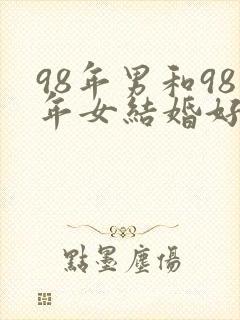 98年男和98
年女結婚好
點墨塵傷